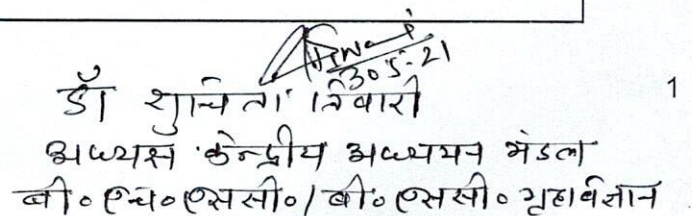 30·5·21
डॉ शुचिता तिवारी
1
अध्यक्ष केन्द्रीय अध्ययन मंडल
बी॰एच॰एससी॰/बी॰एससी॰ गृहविज्ञान